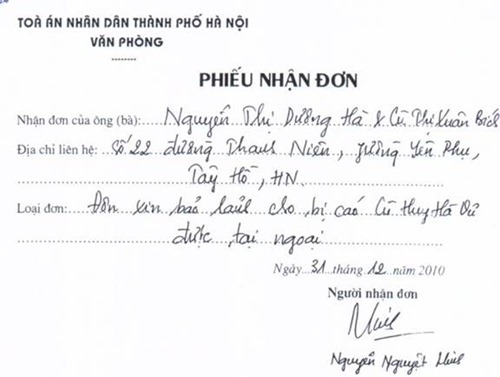 TOÀ ÁN NHÂN DÂN THÀNH PHỐ HÀ NỘI
VĂN PHÒNG
PHIẾU NHẬN ĐƠN
Nhận đơn của ông (bà): Nguyễn Thị Dương Hà & Cù Thị Xuân Bích
Địa chỉ liên hệ: Số 22 đường Thanh Niên, phường Yên Phụ,
Tây Hồ, HN.
Loại đơn: Đơn xin bảo lãnh cho bị cáo Cù Huy Hà Vũ
được tại ngoại
Ngày 31 tháng 12 năm 2010
Người nhận đơn
Nguyễn Nguyệt Minh